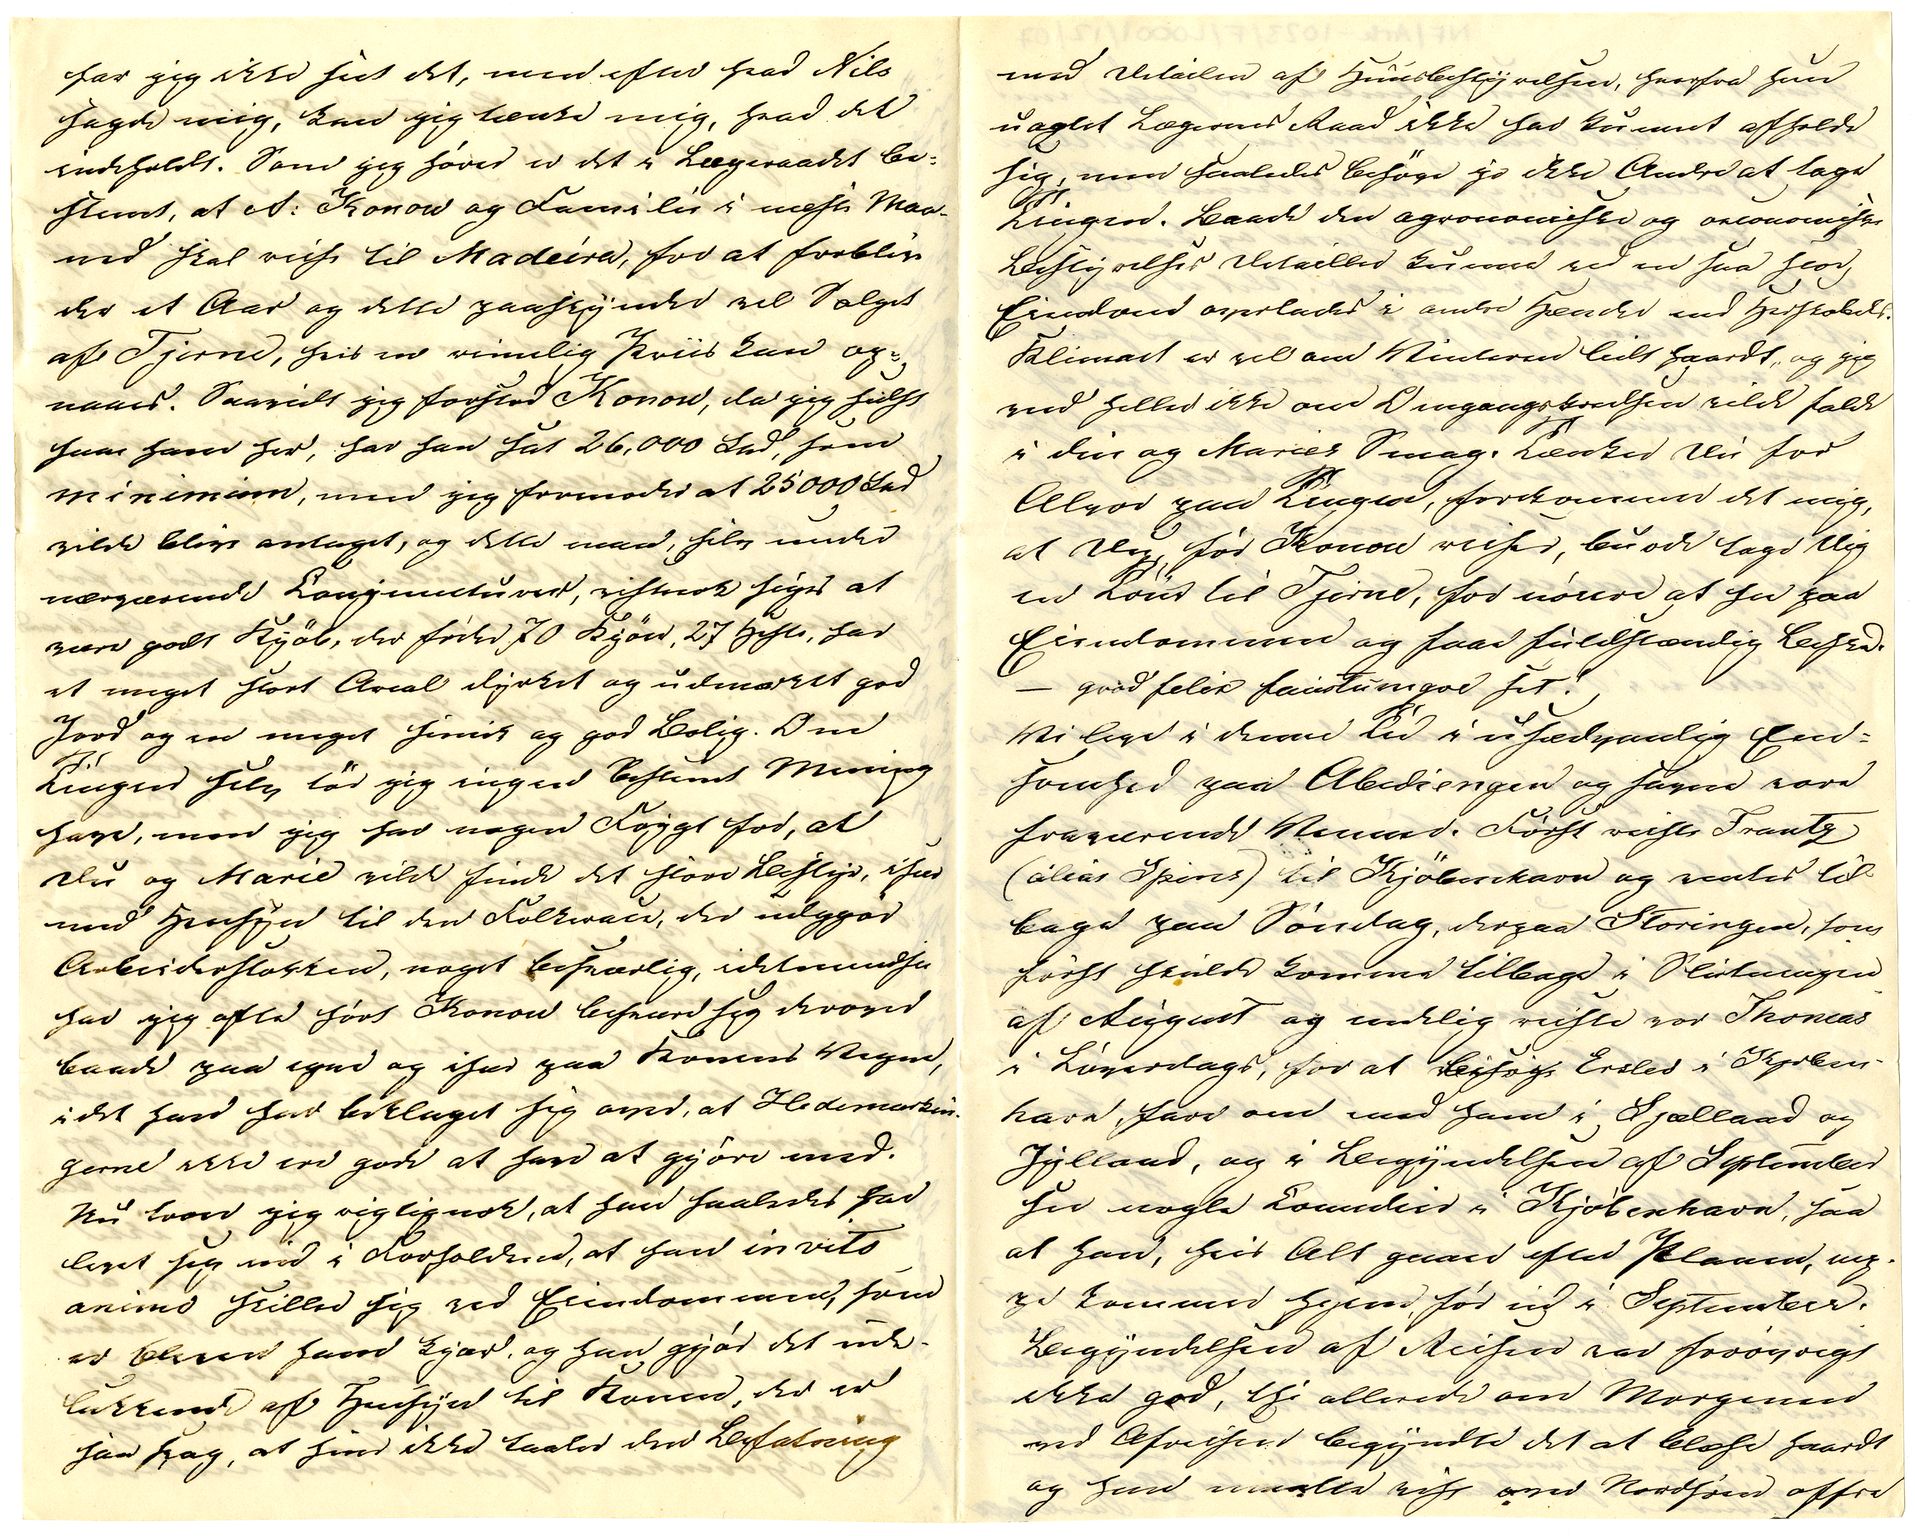 har jeg ikke seet det, men efter hvad Nils
sagde mig, kan jeg tænke mig, hvad det
indeholdt. Som jeg hører er det i Lægeraadet be-
stemt, at A: Konow og Familie i næste Maa-
ned skal reise til Madeira, for at forblive
der et Aar og dette paaskynder vel Salget
af Tjerne, hvis en rimelig Priis kan op-
naaes. Saavidt jeg forstod Konow, da jeg sidst
saae ham her, har han sat 26,000 Spd, som
minimum, men jeg formoder at 25000 Spd
vilde blive antaget, og dette maa, selv under
nærværende Conjuncturer, vistnok siges at
være godt Kjöb, der föder 70 Kjör, 27 Heste, har
et meget stort Areal dyrket og udmærket god
Jord og en meget smuk og god Bolig. Om
Tingen selv tör jeg ingen bestemt Mening
have, men jeg har nogen Frygt for, at
Du og Marie vilde finde det store Bestyr, især
med Hensyn til den Folkerace, der udgjör
Arbeiderstokken, noget besværlig, idetmindste
har jeg ofte hört Konow besvære sig derover
baade paa egne og især paa Konens Vegne,
idet han har beklaget sig over, at Hedemarkin-
gerne ikke ere gode at have at gjöre med.
Nu troer jeg rigtignok, at han saaledes har
levet sig ind i Forholdene, at han invito
animo skiller sig ved Eiendommen, som
er bleven ham kjær, og han gjör det ude-
lukkende af Hensyn til Konen, der er
saa svag, at hun ikke taaler den Befatning
med Detailen af Huusbestyrelsen, hvorfra hun
uagtet Lægernes Raad ikke har kunnet afholde
sig, men saaledes behöve jo ikke Andre at tage
Tingen. Baade den agronomiske og oeconomiske
Bestyrelses Detailler kunne ved en saa stor
Eiendom overlades i andre Hænder end Herskabets.
Klimaet er vel om Vinteren lidt haardt, og jeg
veed heller ikke om Omgangskredsen vilde falde
i din og Maries Smag. Tænker Du for
Alvor paa Tingen, forekommer det mig,
at Du, för Konow reiser, burde tage Dig
en Tour til Tjerne, for nöiere at see paa
Eiendommen og faae fuldstændig Besked.
— quod felix faustumque sit!
Vi leve i denne Tid i usædvanlig Een-
somhed paa Abediengen og savne vore
fraværende Venner. Först reiste Frantz
(alias Spirex) til Kjöbenhavn og ventes til-
bage paa Söndag, derpaa Storingen, som
först skulde komme tilbage i Slutningen
af August og endelig reiste vor Thomas
i Löverdags, for at besöge Ersled i Kjöben-
havn, fare om med ham i Sjælland og
Jylland, og i Begyndelsen af September
see nogle Comedier i Kjöbenhavn, saa
at han, hvis Alt gaaer efter Planen, nep-
pe kommer hjem för ud i September.
Begyndelsen af Reisen var forövrigt
ikke god, thi allerede om Morgenen
ved Afreisen begyndte det at blæse haardt
og han maatte vist ved Nordsöen offre